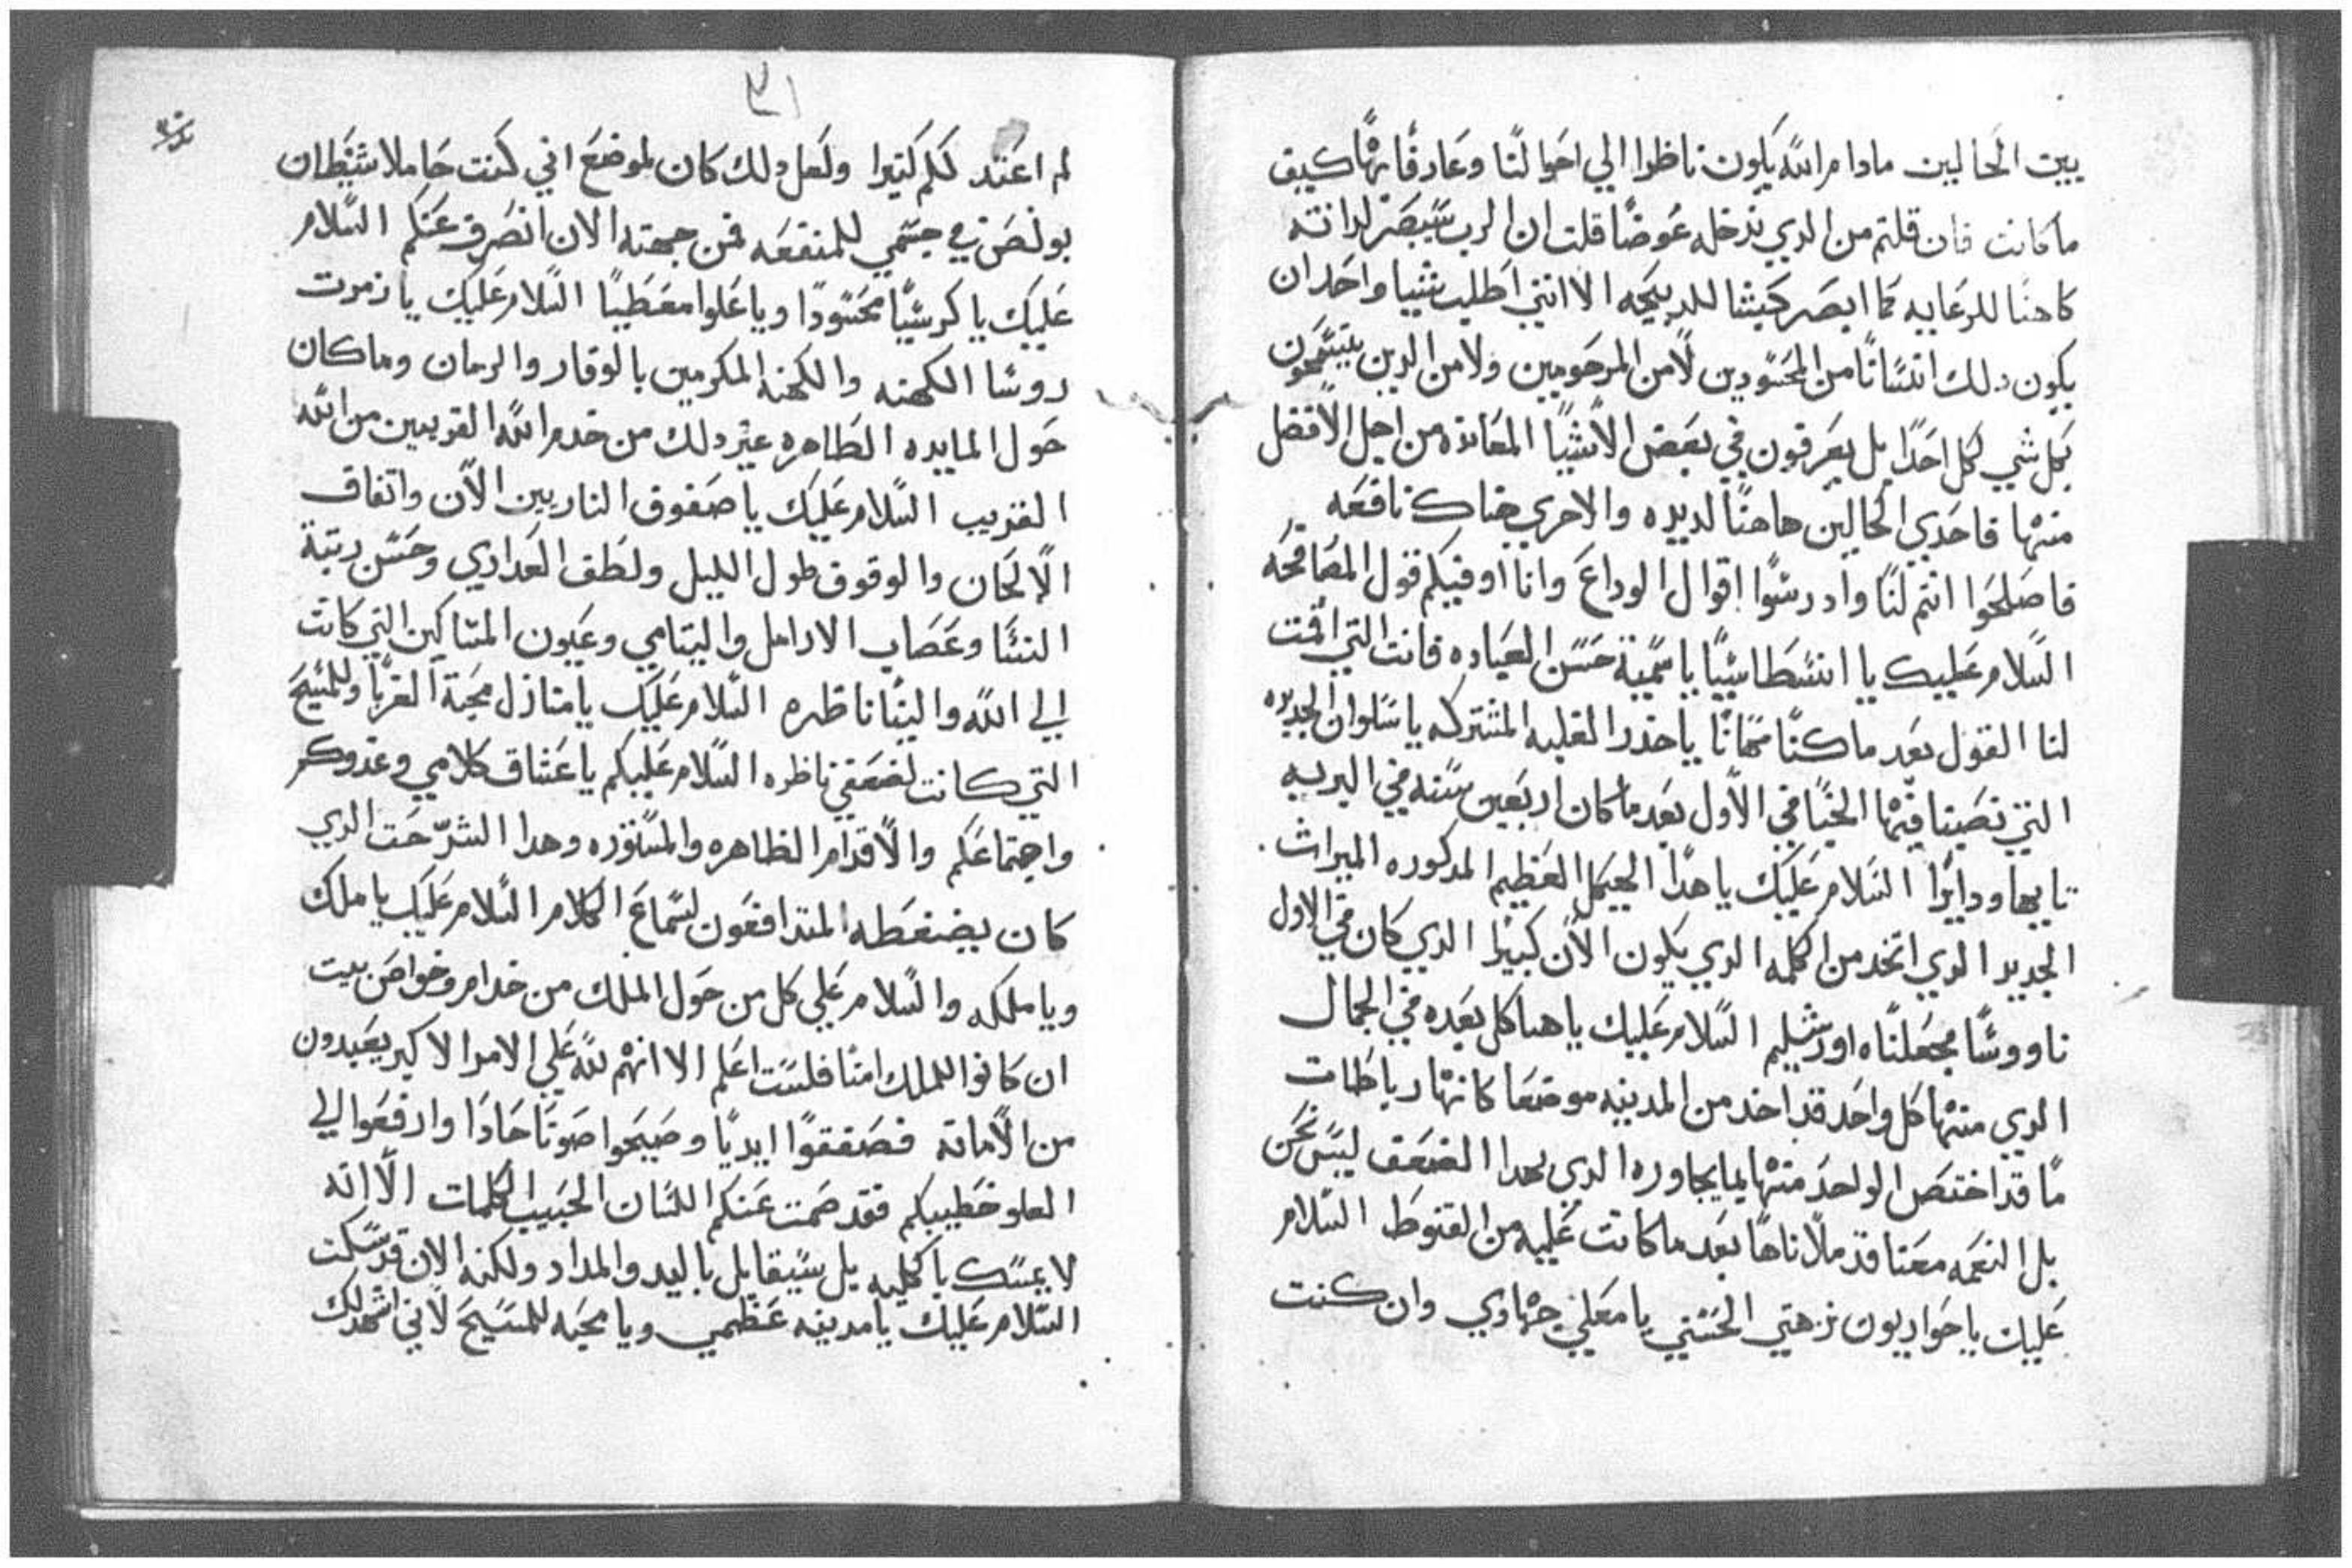 بين الحالين مادام الله يكون ناظرا الي احوالنا وعارفا بها كيف
ما كانت فان قلتم من الدي ندخله عوضا قلت ان الرب سيبصر لداته
كاهنا للرعايه كما ابصر كبشا للدبيحه الا انني اطلب شييا واحد ان
يكون دلك انسانا من المحسودين لا من المرحومين ولا من الدين يتسمحون
بكل شي لكل احد بل يعرفون في بعض الاشيا المعانده من اجل الافضل
منها فاحدي الحالين هاهنا لديده والاخري هناك نافعه
فاصلحوا انتم لنا وادرسوا اقوال الوداع وانا اوفيكم قول المصافحه
السلام عليك يا انسطاسيا يا سمية حسن العباده فانت التي اقمت
لنا القول بعد ما كنا مهانا يا خدر الغلبه المشتركه يا سلوان الجديده
التي نصبنا فيها الخبا في الاول بعد ما كان اربعين سنه في البريه
تايها ودايرا السلام عليك يا هدا الهيكل العظيم المدكوره الميراث
الجديد الدي اتخد من الكلمه الدي يكون الان كبيرا الدي كان في الاول
ناووسا فجعلناه اورشليم السلام عليك يا هياكل بعده في الجمال
الدي منها كل واحد قد اخد من المدينه موضعا كانها رباطات
ما قد اختص الواحد منها بما يجاوره الدي بهدا الضعف ليس نحن
بل النعمه معنا قد ملاناها بعد ما كانت عليه من القنوط السلام
عليك يا حواريون نزهتي الحسني يا معلمي جهادي وان كنت
٣١
لم اعتد لكم كتيرا ولعل دلك كان لموضع اني كنت حاملا شيطان
بولص في جسمي للمنفعه فمن جهته الان انصرف عنكم السلام
عليك يا كرسيا محسودا ويا علوا معطبا السلام عليك يا زمرت
روسا الكهنه والكهنه المكرمين بالوقار والزمان وما كان
حول المايده الطاهره غير دلك من خدم الله القريبين من الله
القريب السلام عليك يا صفوف الناريين الان واتفاق
الالحان والوقوف طول الليل ولطف العداري وحسن رتبة
النسا وعصاب الارامل واليتامي وعيون المساكين التي كانت
الي الله والينا ناظره السلام عليك يا منازل محبة الغربا وللمسيح
التي كانت لضعفي ناظره السلام عليكم يا عشاق كلامي وعدوكم
واجتماعكم والاقدام الظاهره والمستوره وهدا الشرحت الدي
كان يضغطه المتدافعون لسماع الكلام السلام عليك يا ملك
ويا ملكه والسلام علي كل من حول الملك من خدام وخواص بيت
ان كانوا للملك امنا فلست اعلم الا انهم لله علي الامر الاكبر بعيدون
من الامانه فصفقوا ايديا وصيحوا صوتا حادا وارفعوا الي
العلو خطيبكم فقد صمت عنكم اللسان الحبيب الكلمات الا انه
لا يمسك بالكليه بل سيقابل باليد والمداد ولكنه الان قد سكت
السلام عليك يا مدينه عظمي ويا محبه للمسيح لاني اشهد لك